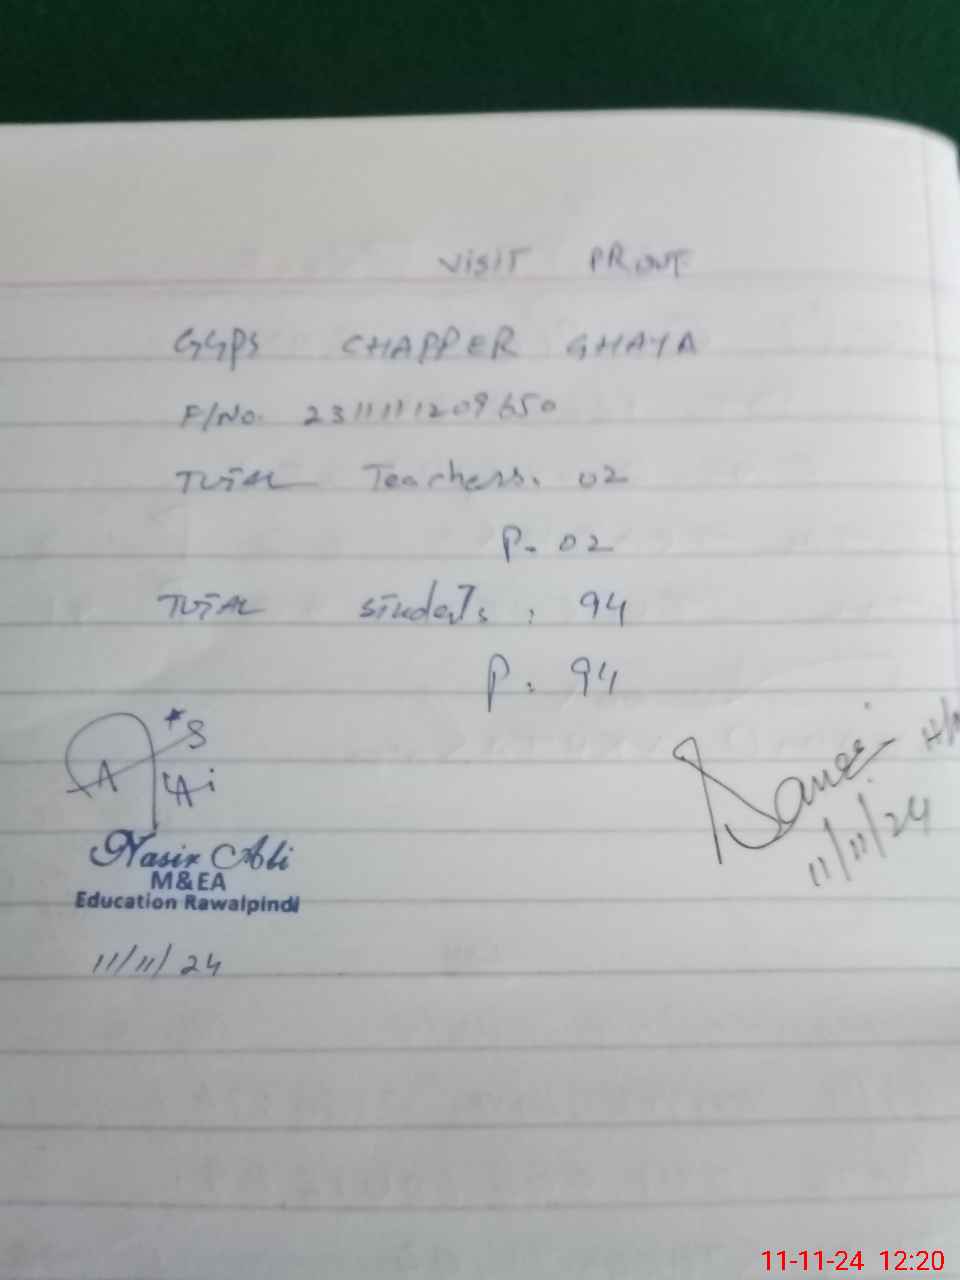 VISIT PROUF
GGPS CHAPPER GHAYA
F/No. 231111209650
TOTAL Teachers. 02
P. 02
TOTAL students : 94
P. 94
Nasir Ali
M&EA
Education Rawalpindi
11/11/24
11/11/24
11-11-24 12:20